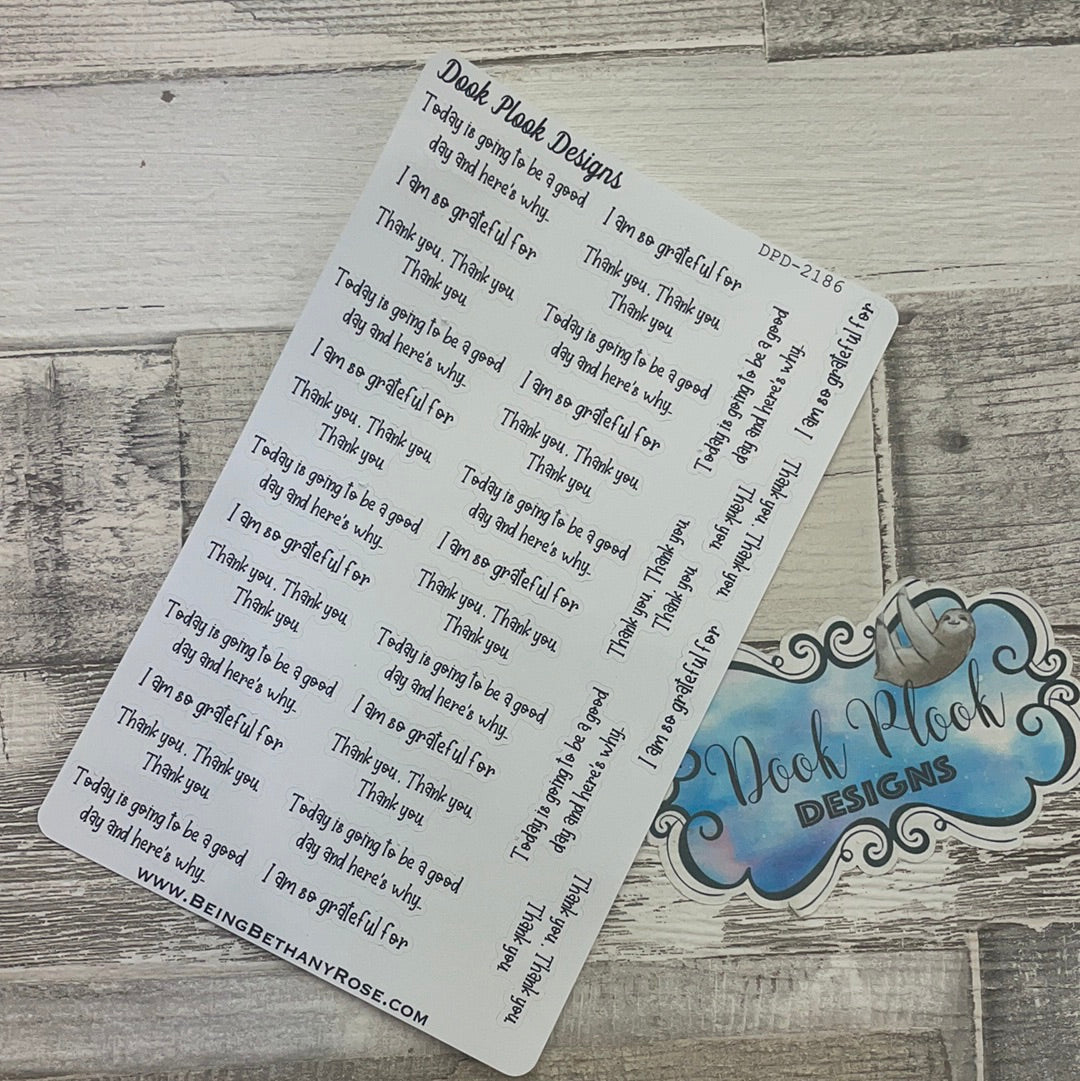 Dook Plook Designs
DPD-2186
Today is going to be a good
day and here's why.
I am so grateful for
Thank you. Thank you.
Thank you.
Today is going to be a good
day and here's why.
I am so grateful for
Thank you. Thank you.
Thank you.
Today is going to be a good
day and here's why.
I am so grateful for
Thank you. Thank you.
Thank you.
Today is going to be a good
day and here's why.
I am so grateful for
Thank you. Thank you.
Thank you.
Today is going to be a good
day and here's why.
I am so grateful for
Thank you. Thank you.
Thank you.
Today is going to be a good
day and here's why.
I am so grateful for
Thank you. Thank you.
Thank you.
Today is going to be a good
day and here's why.
I am so grateful for
Thank you. Thank you.
Thank you.
Today is going to be a good
day and here's why.
I am so grateful for
Thank you. Thank you.
Thank you.
Today is going to be a good
day and here's why.
I am so grateful for
Today is going to be a good
day and here's why.
I am so grateful for
Thank you. Thank you.
Thank you.
Thank you. Thank you.
Thank you.
I am so grateful for
Today is going to be a good
day and here's why.
Thank you. Thank you.
Thank you.
www.BeingBethanyRose.com
Dook Plook
DESIGNS